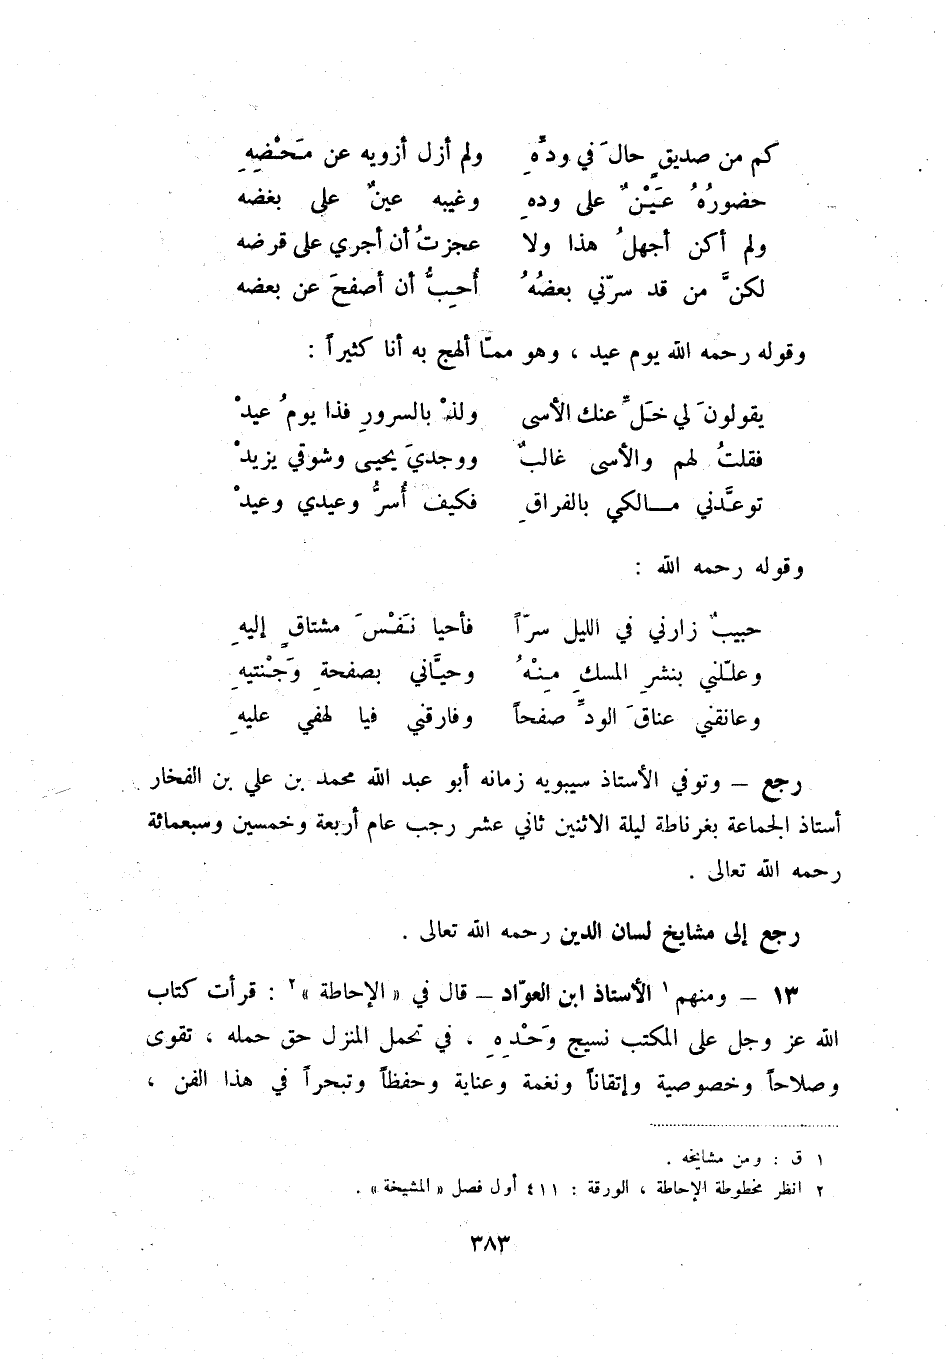 كم من صديقٍ حالَ في ودِّهِ ولم أزل أزويه عن مَحْضِهِ
حضورُهُ عَيْنٌ على ودهِ وغيبه عينٌ على بغضه
ولم أكن أجهلُ هذا ولا عجزتُ أن أجري على قرضه
لكنَّ من قد سرّني بعضُهُ أُحِبُّ أن أصفحَ عن بعضه
وقوله رحمه الله يوم عيد ، وهو ممّا ألهج به أنا كثيراً :
يقولونَ لي خَلِّ عنك الأسى ولذْ بالسرورِ فذا يومُ عيدْ
فقلتُ لهم والأسى غالبٌ ووجديَ يحيـى وشوقي يزيدْ
توعَّدني مـــالكي بالفراقِ فكيف أُسرُّ وعيدي وعيدْ
وقوله رحمه الله :
حبيبٌ زارني في الليل سرّاً فأحيا نَفْسَ مشتاقٍ إليهِ
وعلّلني بنشرِ المسكِ مِنْهُ وحيَّاني بصفحةِ وَجْنتيهِ
وعانقني عناقَ الودِّ صفحاً وفارقني فيا لهفي عليهِ
رجع – وتوفي الأستاذ سيبويه زمانه أبو عبد الله محمد بن علي بن الفخار
أستاذ الجماعة بغرناطة ليلة الاثنين ثاني عشر رجب عام أربعة وخمسين وسبعمائة
رحمه الله تعالى .
رجع إلى مشايخ لسان الدين رحمه الله تعالى .
١٣ – ومنهم ١ الأستاذ ابن العوّاد – قال في « الإحاطة » ٢ : قرأت كتاب
الله عز وجل على المكتب نسيج وَحْدِهِ ، في تحمل المنزل حق حمله ، تقوى
وصلاحاً وخصوصية وإتقاناً ونغمة وعناية وحفظاً وتبحراً في هذا الفن ،
١ ق : ومن مشايخه .
٢ انظر مخطوطة الإحاطة ، الورقة : ٤١١ أول فصل « المشيخة » .
٣٨٣